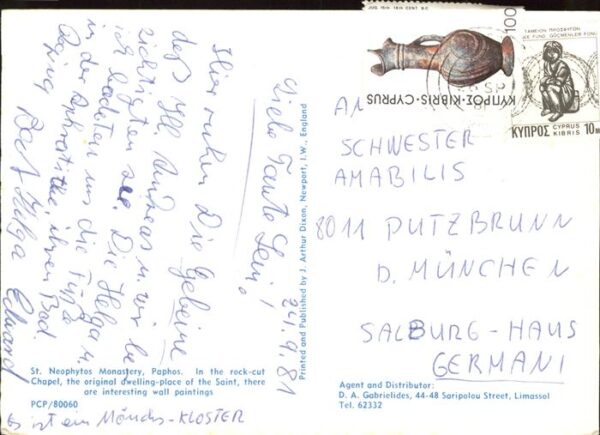 JUG 15th 16th CENT. B.C.
100
ΚΥΠΡΟΣ·KIBRIS·CYPRUS
ΤΑΜΕΙΟΝ ΠΡΟΣΦΥΓΩΝ
GÖÇMENLER FONU
ΚΥΠΡΟΣ CYPRUS KIBRIS 10
24.9.81
Liebe Tante Leni!
Hier ruhn Die Gebeine
deß Hl. Andreas u. wir be
sichtigten sie. Die Helga u.
ich badeten uns die Füße
in der Aphrodithe, ihren Bad.
Helga Eduard
es ist ein MÖNCHS-KLOSTER
AN
SCHWESTER
AMABILIS
8011 PUTZBRUNN
D. MÜNCHEN
SALBURG-HAUS
GERMANI
Printed and Published by J. Arthur Dixon, Newport, I.W., England
St. Neophytos Monastery, Paphos. In the rock-cut
Chapel, the original dwelling-place of the Saint, there
are interesting wall paintings
PCP/80060
Agent and Distributor:
D. A. Gabrielides, 44-48 Saripolou Street, Limassol
Tel. 62332